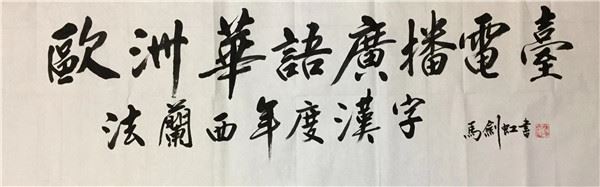 歐洲華語廣播電臺
法蘭西年度漢字
馬劍虹書